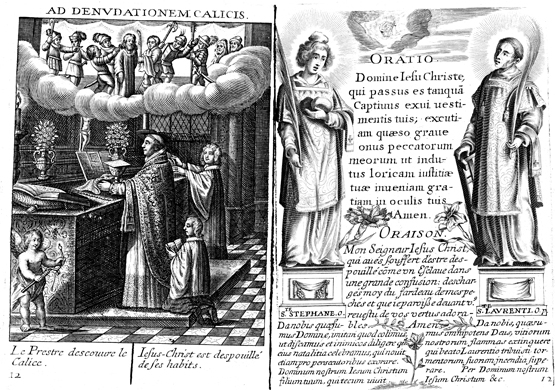 AD DENVDATIONEM CALICIS.
Le Prestre descouvre le
Calice.
Iesus-Christ est despouillé
de ses habits.
12
ORATIO.
Domine Iesu Christe,
qui passus es tanquā
Captiuus exui uesti-
mentis tuis; excuti-
am quæso graue
onus peccatorum
meorum ut indu-
tus loricam iustitiæ
tuæ inueniam gra-
tiam in oculis tuis
Amen.
ORAISON.
Mon Seigneur Iesus Christ,
qui avés souffert destre des-
pouillé cōme vn Esclave dans
une grande confusion: deschar-
gés moy du fardeau de mes pe-
chés et que ie paroisse devant vs.
revestu de vos vertus adora-
bles Amen.
S. STEPHANE. O.
S. LAVRENTI. O. P.
Da nobis quæsu-
mus Domine, imitari quod colimus,
ut discamus et inimicos diligere quia
eius natalitia celebramus, qui novit
etiam pro persecutoribus exorare
Dominum nostrum Iesum Christum
filium tuum, qui tecum vivit
Da nobis, quæsu-
mus omnipotens Deus, vitiorum
nostrorum flammas extinguere
qui beato Laurentio tribuisti tor-
mentorum suorum incendia supe-
rare. Per Dominum nostrum
Iesum Christum &c.
12